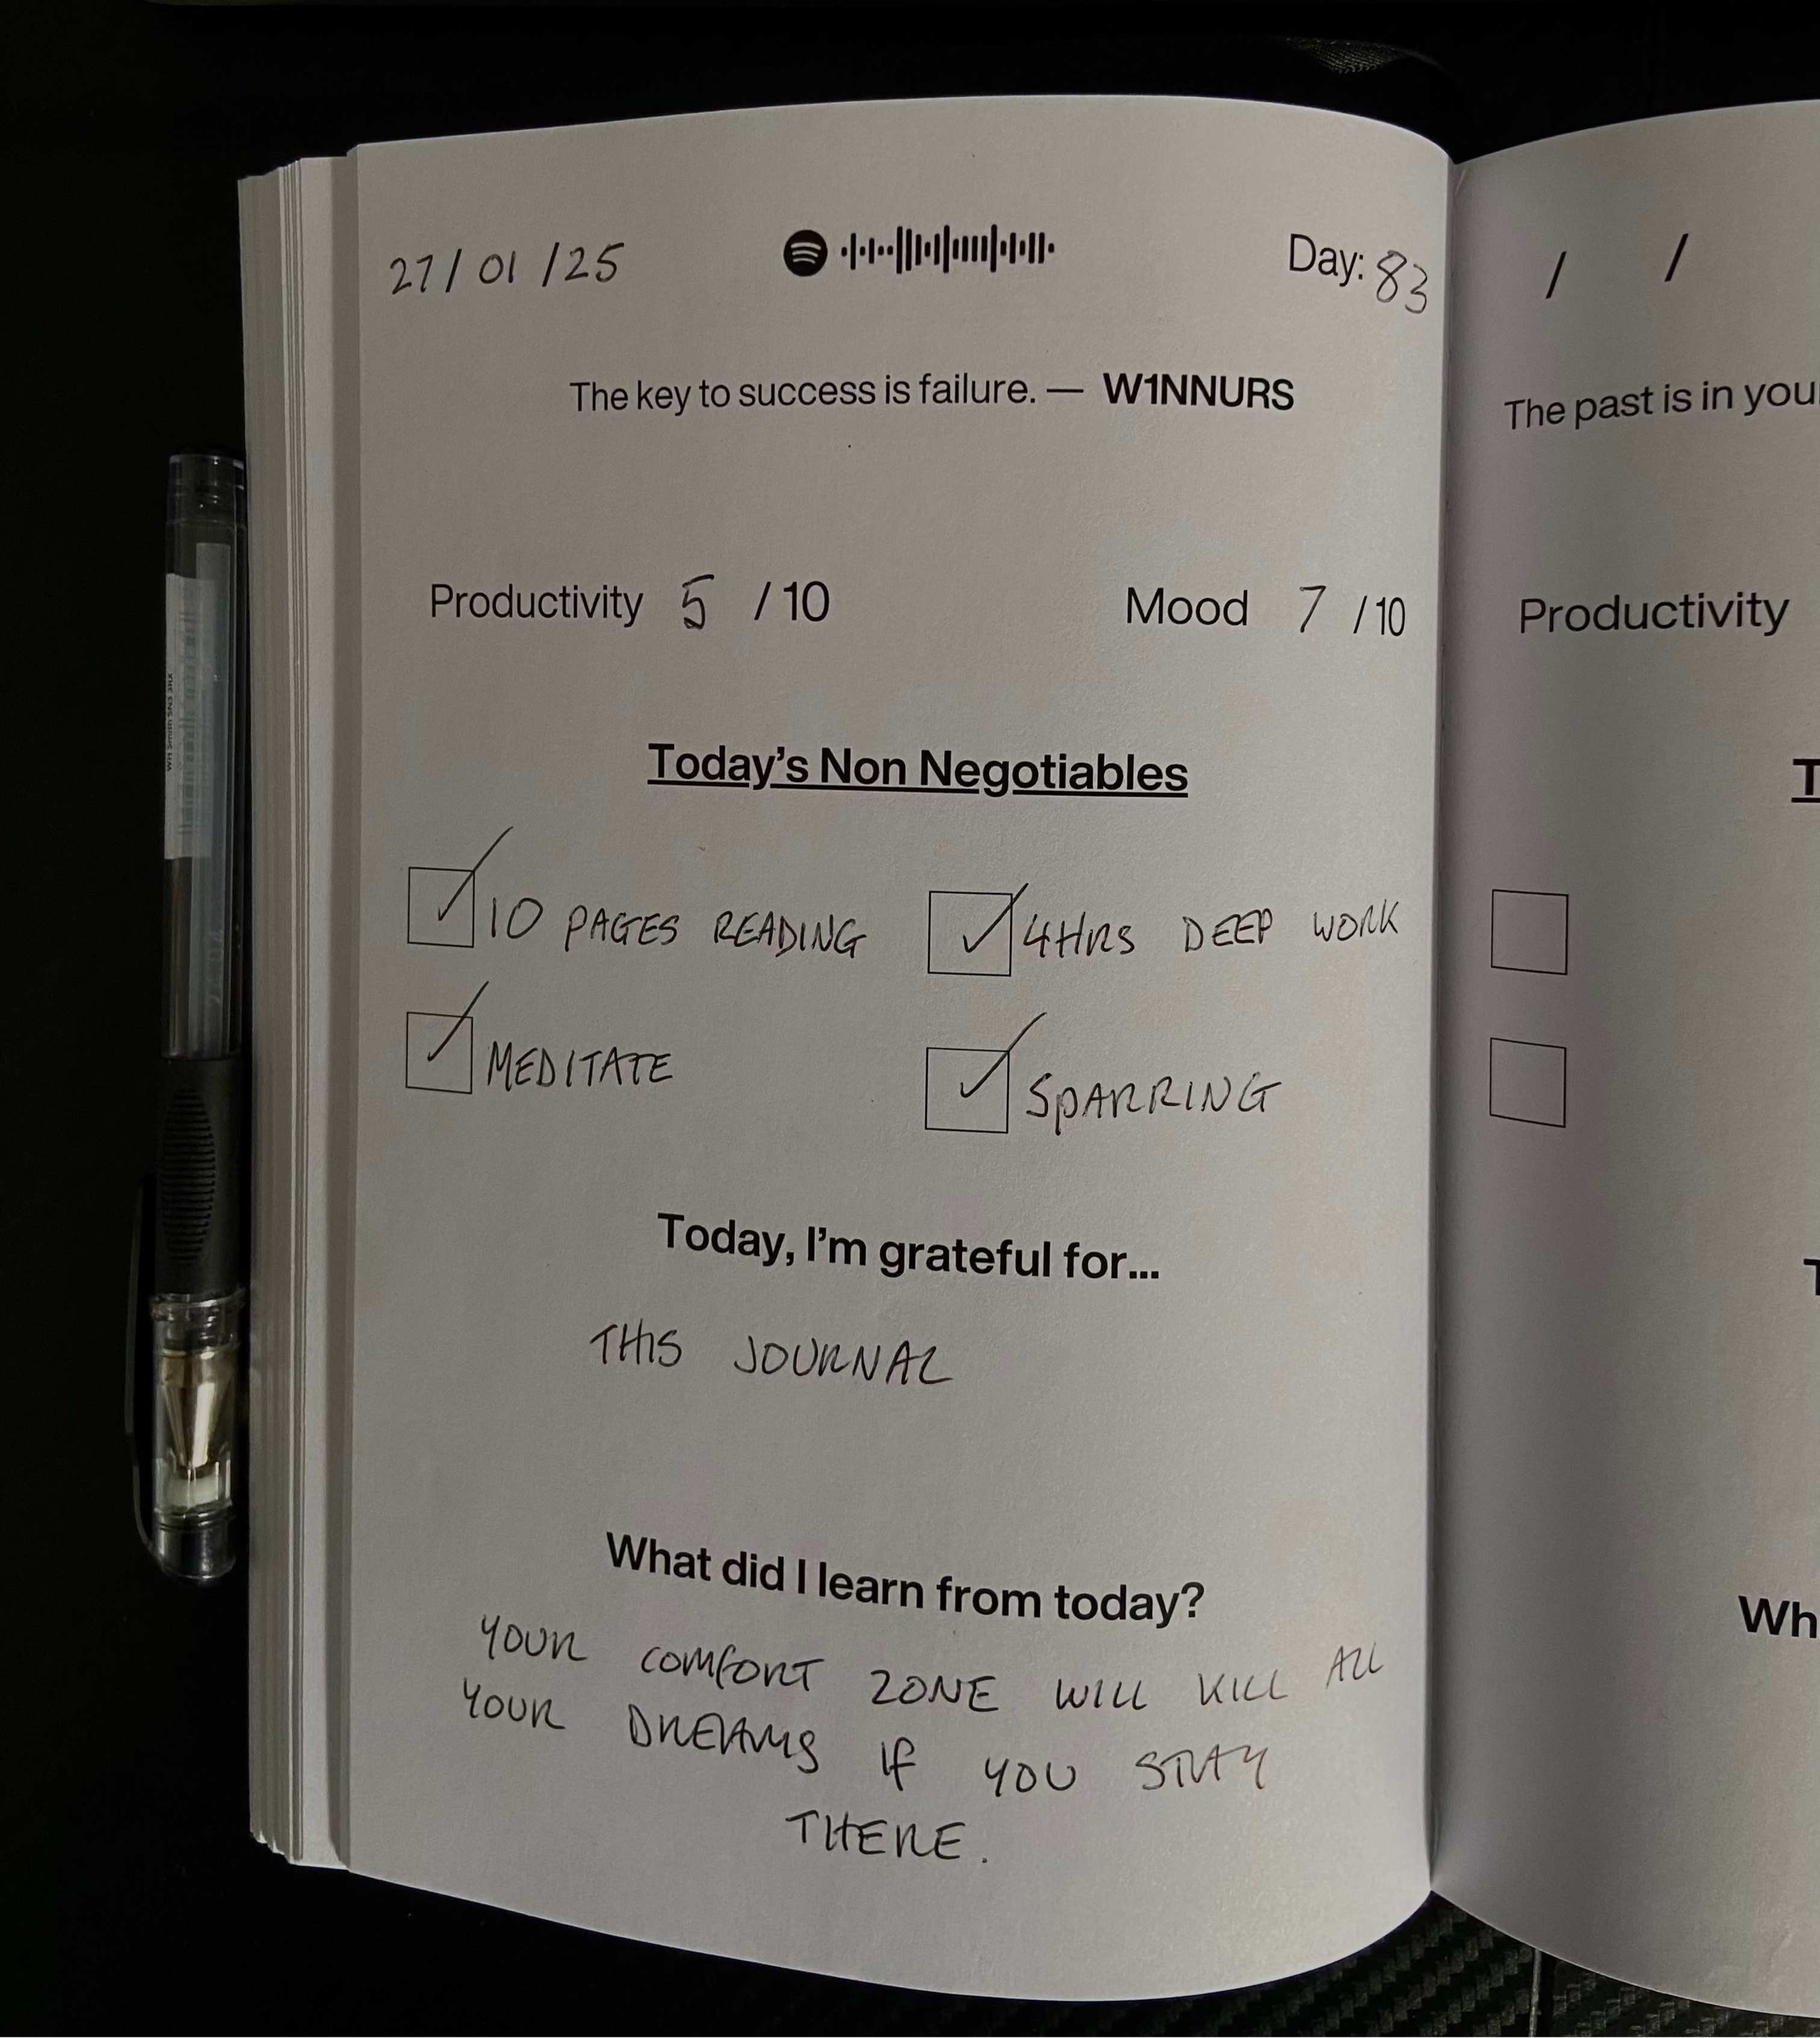 27/01/25
Day: 83
The key to success is failure. — W1NNURS
Productivity 5 /10
Mood 7 /10
Today's Non Negotiables
10 PAGES READING
4HRS DEEP WORK
MEDITATE
SPARRING
Today, I'm grateful for...
THIS JOURNAL
What did I learn from today?
YOUR COMFORT ZONE WILL KILL ALL
YOUR DREAMS IF YOU STAY
THERE.
/ /
The past is in you
Productivity
T
T
Wh